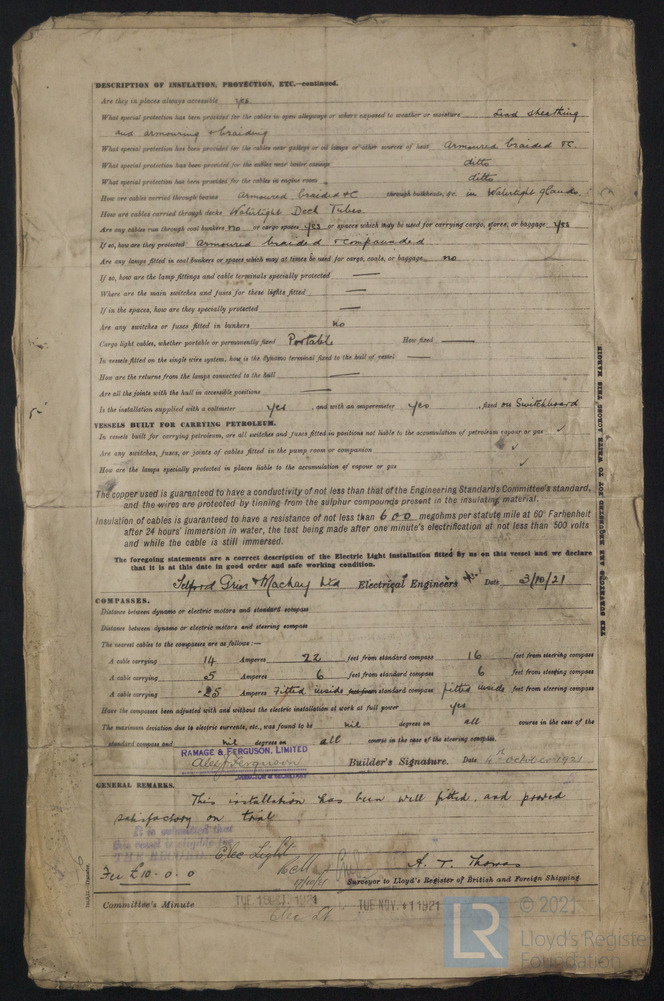 DESCRIPTION OF INSULATION, PROTECTION, ETC.—continued.
Are they in places always accessible yes
What special protection has been provided for the cables in open alleyways or where exposed to weather or moisture Lead sheathing
and armouring & braiding
What special protection has been provided for the cables near galleys or oil lamps or other sources of heat Armoured braided &C.
What special protection has been provided for the cables near boiler casings ditto
What special protection has been provided for the cables in engine room ditto
How are cables carried through beams Armoured braided &C through bulkheads, &c. in Watertight Glands.
How are cables carried through decks Watertight Deck Tubes.
Are any cables run through coal bunkers no or cargo spaces yes or spaces which may be used for carrying cargo, stores, or baggage yes
If so, how are they protected armoured braided & compounded
Are any lamps fitted in coal bunkers or spaces which may at times be used for cargo, coals, or baggage no
If so, how are the lamp fittings and cable terminals specially protected —
Where are the main switches and fuses for these lights fitted —
If in the spaces, how are they specially protected —
Are any switches or fuses fitted in bunkers no
Cargo light cables, whether portable or permanently fixed Portable How fixed —
In vessels fitted on the single wire system, how is the dynamo terminal fixed to the hull of vessel —
How are the returns from the lamps connected to the hull —
Are all the joints with the hull in accessible positions —
Is the installation supplied with a voltmeter yes, and with an amperemeter yes, fixed on Switchboard
VESSELS BUILT FOR CARRYING PETROLEUM.
In vessels built for carrying petroleum, are all switches and fuses fitted in positions not liable to the accumulation of petroleum vapour or gas ✓
Are any switches, fuses, or joints of cables fitted in the pump room or companion ✓
How are the lamps specially protected in places liable to the accumulation of vapour or gas ✓
The copper used is guaranteed to have a conductivity of not less than that of the Engineering Standards Committee's standard,
and the wires are protected by tinning from the sulphur compounds present in the insulating material.
Insulation of cables is guaranteed to have a resistance of not less than 600 megohms per statute mile at 60° Farhenheit
after 24 hours' immersion in water, the test being made after one minute's electrification at not less than 500 volts
and while the cable is still immersed.
The foregoing statements are a correct description of the Electric Light installation fitted by us on this vessel and we declare
that it is at this date in good order and safe working condition.
Telford Grier & Mackay Ltd Electrical Engineers Date 3/10/21
COMPASSES.
Distance between dynamo or electric motors and standard compass
Distance between dynamo or electric motors and steering compass
The nearest cables to the compasses are as follows:—
A cable carrying 14 Amperes 22 feet from standard compass 16 feet from steering compass
A cable carrying 5 Amperes 6 feet from standard compass 6 feet from steering compass
A cable carrying .25 Amperes Fitted inside feet from standard compass fitted inside feet from steering compass
Have the compasses been adjusted with and without the electric installation at work at full power yes
The maximum deviation due to electric currents, etc., was found to be nil degrees on all course in the case of the
standard compass and nil degrees on all course in the case of the steering compass.
RAMAGE & FERGUSON, LIMITED
Alex Ferguson Builder's Signature. Date 4th October 1921
DIRECTOR & SECRETARY
GENERAL REMARKS.
This installation has been well fitted, and proved
satisfactory on trial
It is submitted that
this vessel is eligible for
THE RECORD. Elec Light
Fee £10. 0. 0
A. T. Thomas
Surveyor to Lloyd's Register of British and Foreign Shipping.
Committee's Minute TUE 18 OCT. 1921 TUE. NOV. 1 1921
Elec Lt
THE SURVEYORS ARE REQUESTED NOT TO WRITE ACROSS THIS MARGIN
LR © 2021
Lloyd's Register
Foundation